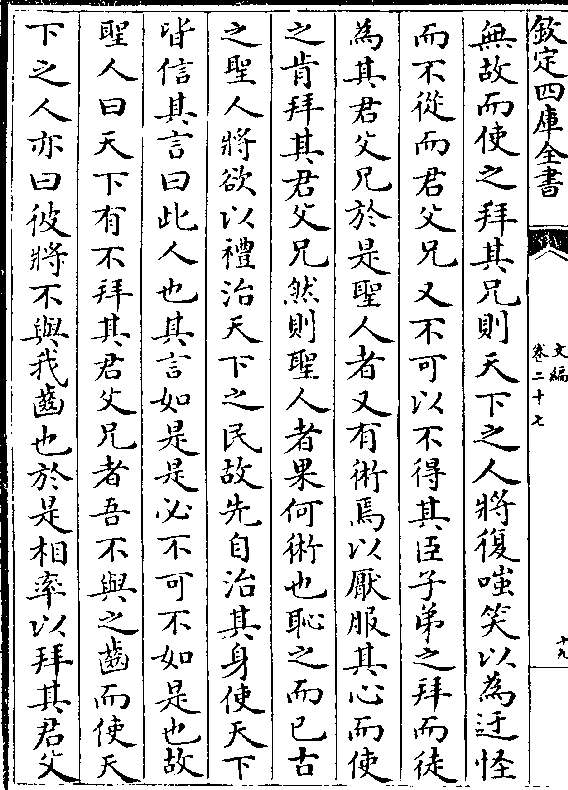 欽定四庫全書
文編
卷二十七
十九
無故而使之拜其兄則天下之人將復嗤笑以為迂怪
而不從而君父兄又不可以不得其臣子弟之拜而徒
為其君父兄於是聖人者又有術焉以厭服其心而使
之肯拜其君父兄然則聖人者果何術也恥之而已古
之聖人將欲以禮治天下之民故先自治其身使天下
皆信其言曰此人也其言如是是必不可不如是也故
聖人曰天下有不拜其君父兄者吾不與之齒而使天
下之人亦曰彼將不與我齒也於是相率以拜其君父